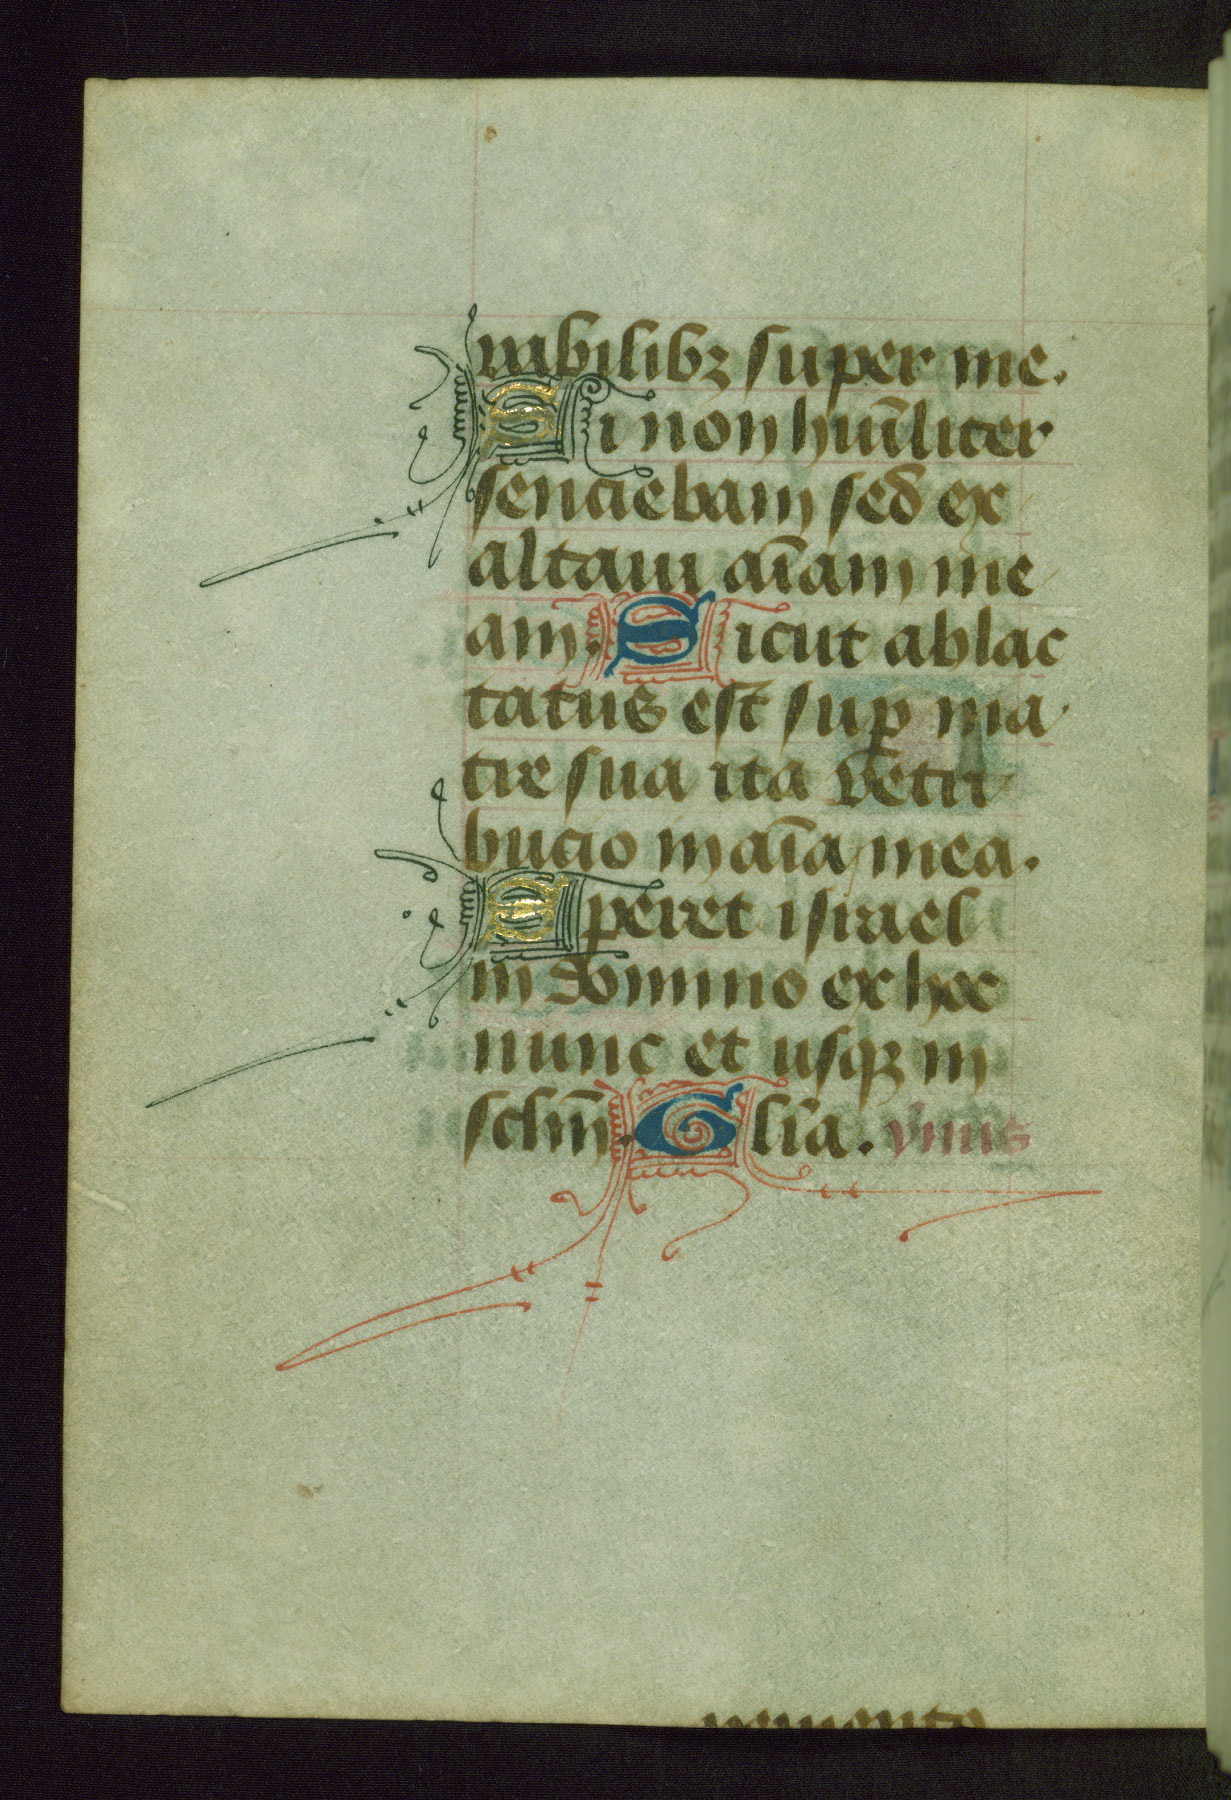 rabilibꝫ super me.
Si non huīliter
senciebam sed ex
altaui aīam me
am. Sicut ablac
tatus est suꝑ ma
tre sua ita retri
bucio in aīa mea.
Speret israel
in domino ex hoc
nunc et usqꝫ in
sclm̄. Glīa. ymnus